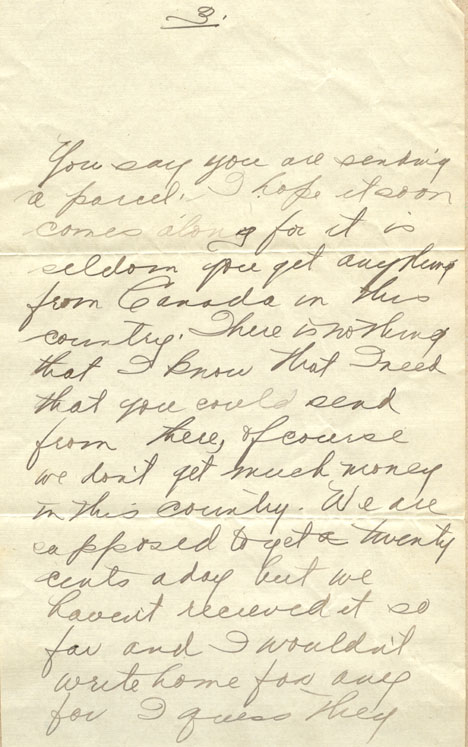 3.
You say you are sending
a parcel. I hope it soon
comes along for it is
seldom you get anything
from Canada in this
country. There is nothing
that I know that I need
that you could send
from there, of course
we don't get much money
in this country. We are
sapposed to get a twenty
cents a day but we
haven't recieved it so
far and I wouldn't
write home for any
for I guess they